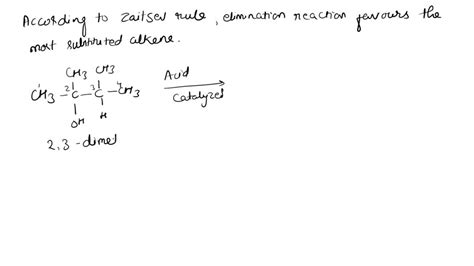 According to Zaitsev rule, elimination reaction favours the
most substituted alkene.
CH3 CH3
1 2 3 4
CH3 - C - C - CH3
OH H
Acid
Catalyzed
2,3-dimet